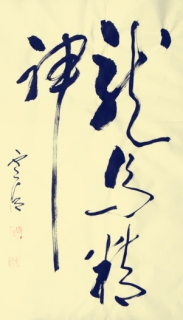 龍馬精
神